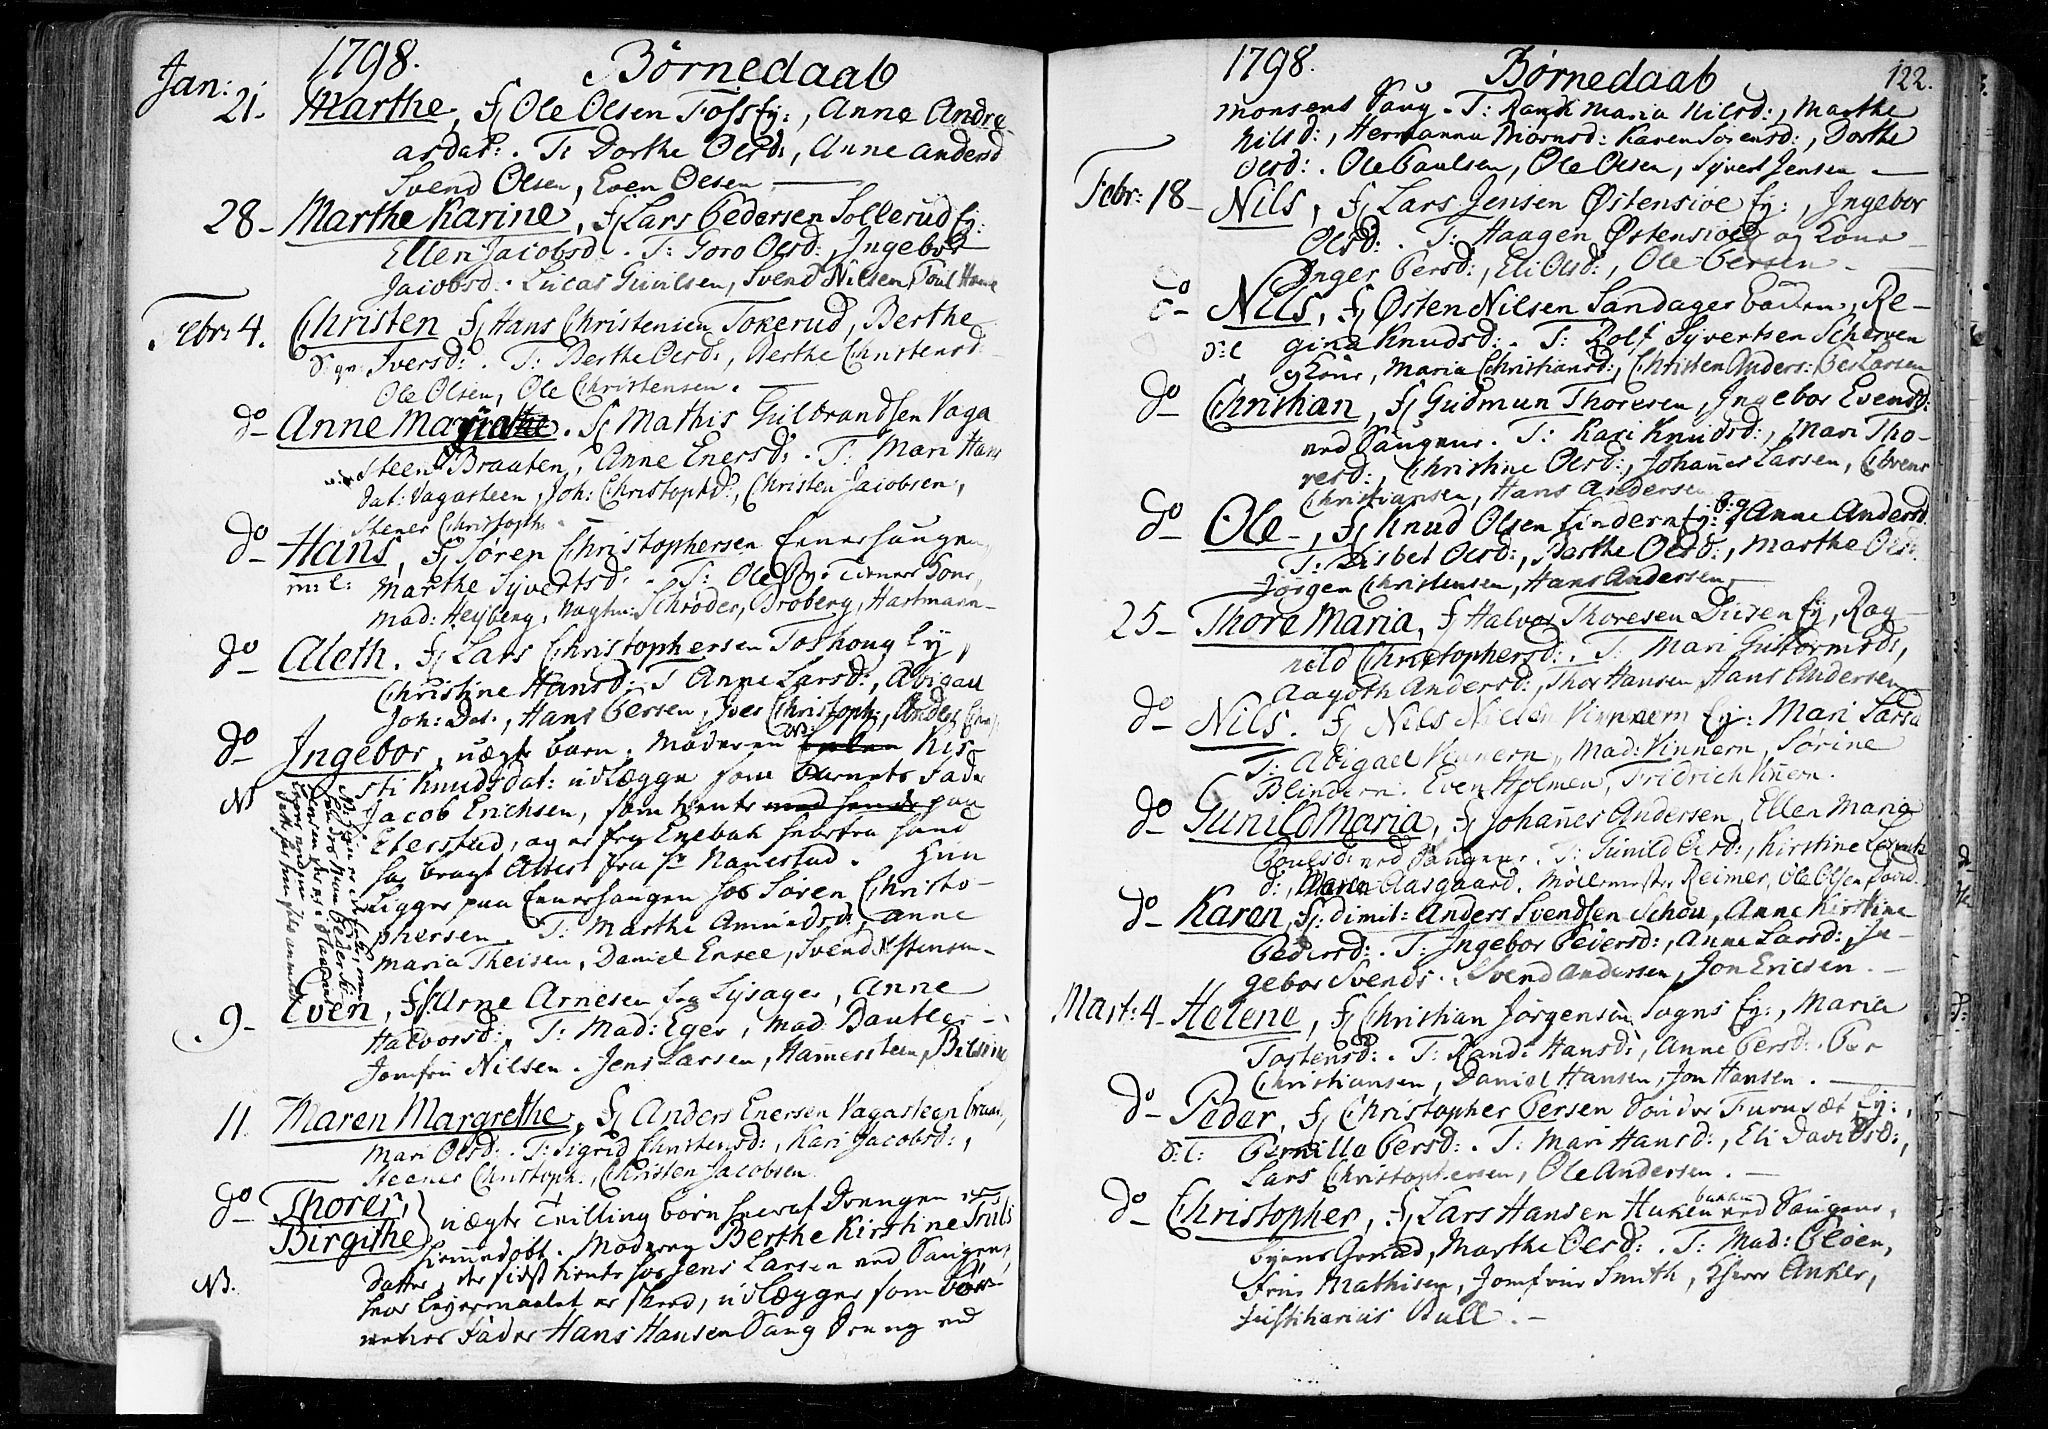 1798. Børnedaab
Jan: 21. Marthe, f/ Ole Olsen Foss Ey:, Anne Andre
asdat: . T: Dorthe Olsd:, Anne Andersd
Svend Olsen, Even Olsen
28 - Marthe Karine, f/ Lars Pedersen Sollerud Ey:
Ellen Jacobsd. T: Goro Olsd:, Ingebor
Jacobsd. Lucas Svend Nilsen, Poul
Febr: 4. Christen f/ Hans Christensen Tokerud, Berthe
Iversd: . T: Berthe Olsd:, Berthe Christensd:
Ole Olsen, Ole Christensen.
do - Anne Maria. f/ Mathis Gulbrandsen Vaga
steen Braaten, Anne Enersd: . T: Mari Hans
dat: Vagasteen, Joh: Christophd:, Christen Jacobsen,
Stener Christoph:
do - Hans, f/ Søren Christophersen Ennerhaugen,
Marthe Syvertsd: . T: Ole Kone,
Mad: Heyberg, Schrøder, Broberg, Hartmann -
do - Aleth. f/ Lars Christophersen Toshoug Ey,
Christine Hansd: T Anne Larsd:, Abigael
Joh: Dat., Hans Persen, Iver Christoph:, Anders
do - Ingebor, uægte barn. Moderen Kir-
sti Knudsdat: udlægger som barnets Fader
NB Jacob Erichsen, som tiente med hende paa
Eberstad, og er fra Enebak hvorfra hun
har bragt Attest fra Hr Namestad. Hun
ligger paa Ennerhaugen hos Søren Christo-
phersen. T: Marthe Amundsd:, Anne
Maria Theisen, Daniel Ensee, Svend
9 - Even, f/ Arne Arnesen fra Lysager, Anne
Halvorsd: . T: Mad: Eger, Mad: Bautler -
Jomfru Nilsen. Jens Larsen, Hamersteen,
11. Maren Margrethe, f/ Anders Enersen Vagasteen
Mari Olsd: . T: Sigrid Christensd:, Kari Jacobsd:,
Steener Christoph:, Christen Jacobsen
do - Thorer,
Birgithe uægte Tvilling børn hvoraf Drengen er
hiemmedøbt. Moderen Berthe Kirstine Truls
Datter, der sidst tiente hos Jens Larsen ved Saugene,
NB. hvor leyermaalet er skeed, udlægger som bør-
nenes Fader Hans Hansen Saug Dreng ved
1798. Børnedaab 122.
Monsens Saug. T: Randi Maria Nilsd:, Marthe
Nilsd:, Hermanna Biørnsd: Karen Sørensd:, Dorthe
Olsd: . Ole Paulsen, Ole Olsen, Syvert Jensen
Febr: 18 - Nils, f/ Lars Jensen Østensiøe Ey:, Ingebor
Olsd: . T: Haagen Østensiøe og Kone
Inger Persd:, Eli Olsd:, Ole Persen -
do - Nils, f/ Østen Nilsen Sandager, Re-
gina Knudsd: . T: Rolf Syvertsen Scherven
og Kone, Maria Christiansd:, Christen Anders:, Per Larsen
do - Christian, f/ Gudmun Thoresen, Ingebor Evensd:
ved Saugene. T: Kari Knudsd:, Mari Tho-
resd:, Christine Olsd:, Johannes Larsen,
Christiansen, Hans Andersen
do - Ole -, f/ Knud Olsen Lindern Ey: Anne Andersd
T: Lisbet Olsd:, Berthe Olsd:, Marthe Olsd:
Jørgen Christensen, Hans Andersen,
25 - Thore Maria, f/ Halvor Thoresen Disen Ey, Rag
nild Christophersd: . T: Mari Guttormsd:,
Aagoth Andersd:, Thor Hansen, Hans Andersen
do - Nils. f/ Nils Nilsen Vinnern Ey: Mari Larsd
T: Abigael Vinnern, Mad: Vinnern, Sørine
Blindern. Even Holmen, Fridrich Vinnern.
do - Gunild Maria, f/ Johannes Andersen, Ellen Maria
Poulsd: ved Saugene. T: Gunild Olsd:, Kirstine Larsens
d:, Maren Aasgaard. Møllemester Reimer, Ole Olsen
do - Karen, f/ dimit: Anders Svendsen Schou, Anne Kirstine
Pedersd: . T: Ingebor Peiersd:, Anne Larsd:, In-
gebor Svends: . Svend Andersen, Jon Ericsen.
Mart: 4 - Helene, f/ Christian Jørgensen Sogns Ey:, Maria
Tostensd: . T: Rand: Hansd:, Anne Persd: Per
Christiansen, Daniel Hansen, Jon Hansen.
do - Peder, f/ Christopher Persen Sønder Furuset Ey:,
Pernille Persd: . T: Mari Hansd:, Eli Davidsd:,
Lars Christophersen, Ole Andersen.
do - Christopher, f/ Lars Hansen Huken ved Saugene,
byens Grund, Marthe Olsd: . T: Mad: Pløen,
Frue Mathisen, Jomfrue Smith, Hherr Anker,
Justitiarius Bull.